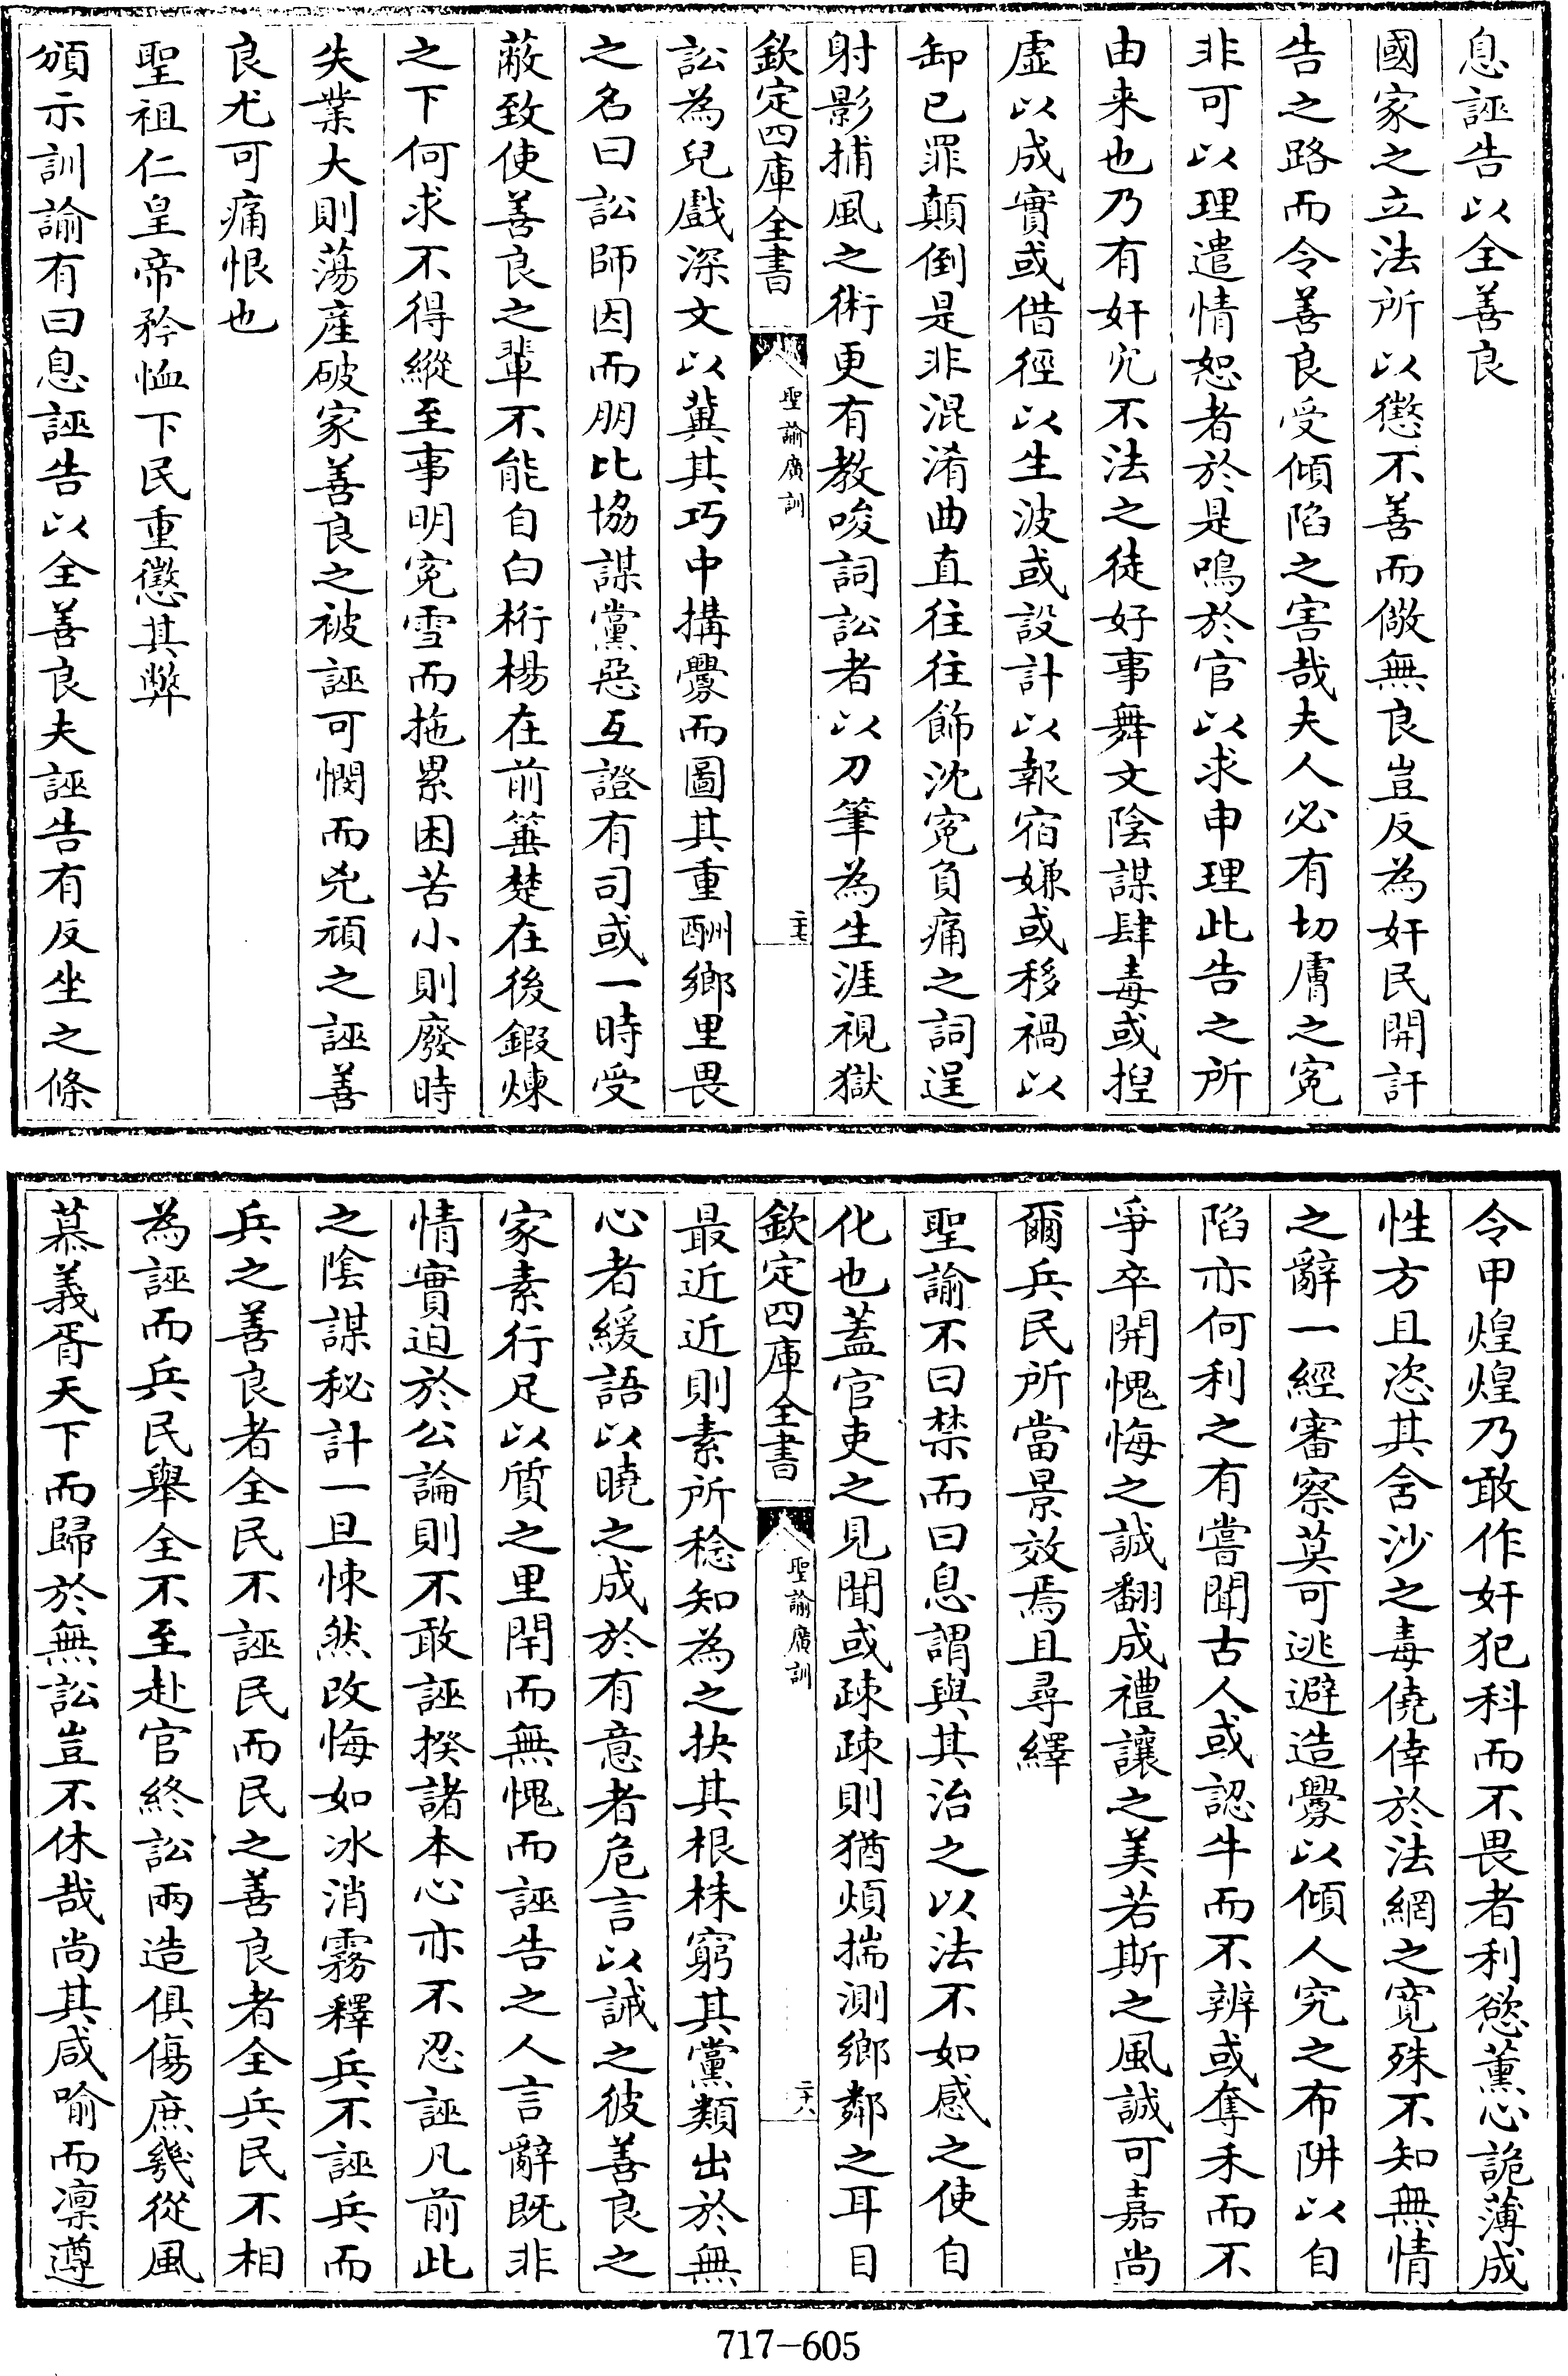 息誣告以全善良
國家之立法所以懲不善而儆無良豈反為奸民開訐
告之路而令善良受傾陷之害哉夫人必有切膚之冤
非可以理遣情恕者於是鳴於官以求申理此告之所
由来也乃有奸宄不法之徒好事舞文陰謀肆毒或揑
虛以成實或借徑以生波或設計以報宿嫌或移禍以
卸已罪顛倒是非混淆曲直往往飾沈冤負痛之詞逞
射影捕風之術更有教唆詞訟者以刀筆為生涯視獄
欽定四庫全書
聖諭廣訓
二十七
訟為兒戲深文以冀其巧中搆釁而圖其重酬鄉里畏
之名曰訟師因而朋比協謀黨惡互證有司或一時受
蔽致使善良之輩不能自白桁楊在前箠楚在後鍛煉
之下何求不得縱至事明冤雪而拖累困苦小則廢時
失業大則蕩產破家善良之被誣可憫而兇頑之誣善
良尤可痛恨也
聖祖仁皇帝矜恤下民重懲其弊
頒示訓諭有曰息誣告以全善良夫誣告有反坐之條
令甲煌煌乃敢作奸犯科而不畏者利慾薰心詭薄成
性方且恣其含沙之毒僥倖於法網之寬殊不知無情
之辭一經審察莫可逃避造釁以傾人究之布阱以自
陷亦何利之有嘗聞古人或認牛而不辨或奪禾而不
爭卒開愧悔之誠翻成禮讓之美若斯之風誠可嘉尚
爾兵民所當景效焉且尋繹
聖諭不曰禁而曰息謂與其治之以法不如感之使自
化也蓋官吏之見聞或疎疎則猶煩揣測鄉鄰之耳目
欽定四庫全書
聖諭廣訓
二十八
最近近則素所稔知為之抉其根株窮其黨類出於無
心者緩語以曉之成於有意者危言以誡之彼善良之
家素行足以質之里閈而無愧而誣告之人言辭既非
情實迫於公論則不敢誣揆諸本心亦不忍誣凡前此
之陰謀秘計一旦悚然改悔如冰消霧釋兵不誣兵而
兵之善良者全民不誣民而民之善良者全兵民不相
為誣而兵民舉全不至赴官終訟兩造俱傷庶幾從風
慕義胥天下而歸於無訟豈不休哉尚其咸喻而凛遵
717-605